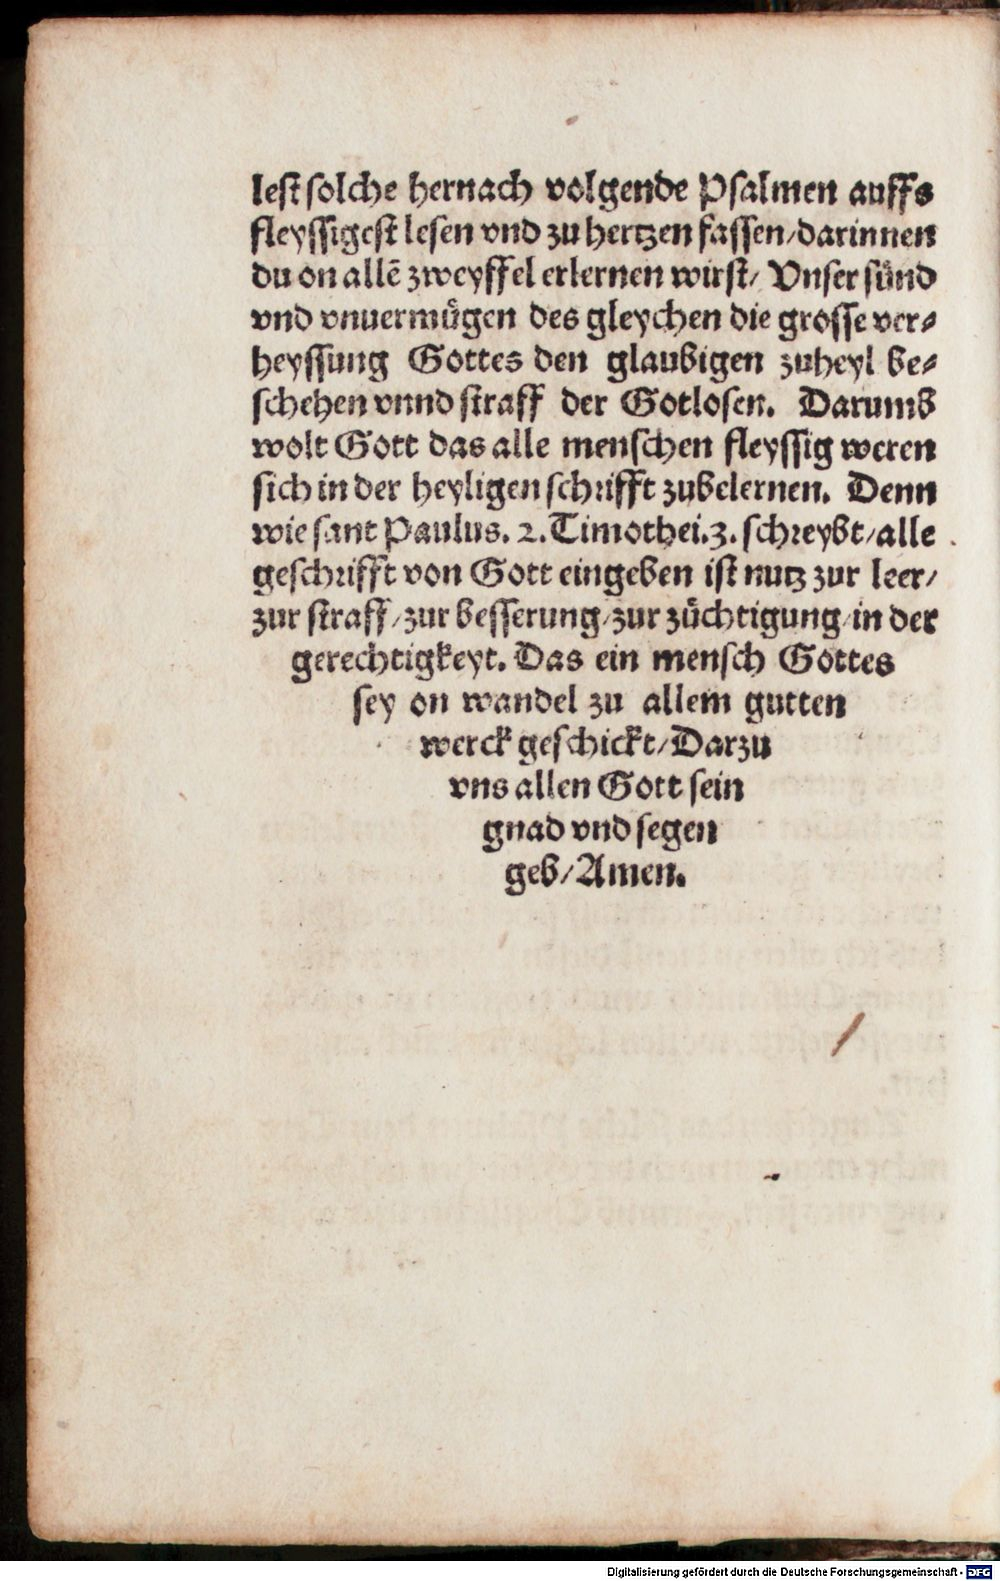 lest solche hernach volgende Psalmen auffs
fleyssigest lesen vnd zu hertzen fassen/darinnen
du on allē zweyffel erlernen wirst/ Vnser sünd
vnd vnuermügen des gleychen die grosse ver-
heyssung Gottes den glaubigen zuheyl be-
schehen vnnd straff der Gotlosen. Darumb
wolt Gott das alle menschen fleyssig weren
sich in der heyligen schrifft zubelernen. Denn
wie sant Paulus. 2. Timothei.3. schreybt/alle
geschrifft von Gott eingeben ist nutz zur leer/
zur straff/zur besserung/zur züchtigung/in der
gerechtigkeyt. Das ein mensch Gottes
sey on wandel zu allem gutten
werck geschickt/Darzu
vns allen Gott sein
gnad vnd segen
geb/Amen.
Digitalisierung gefördert durch die Deutsche Forschungsgemeinschaft - DFG